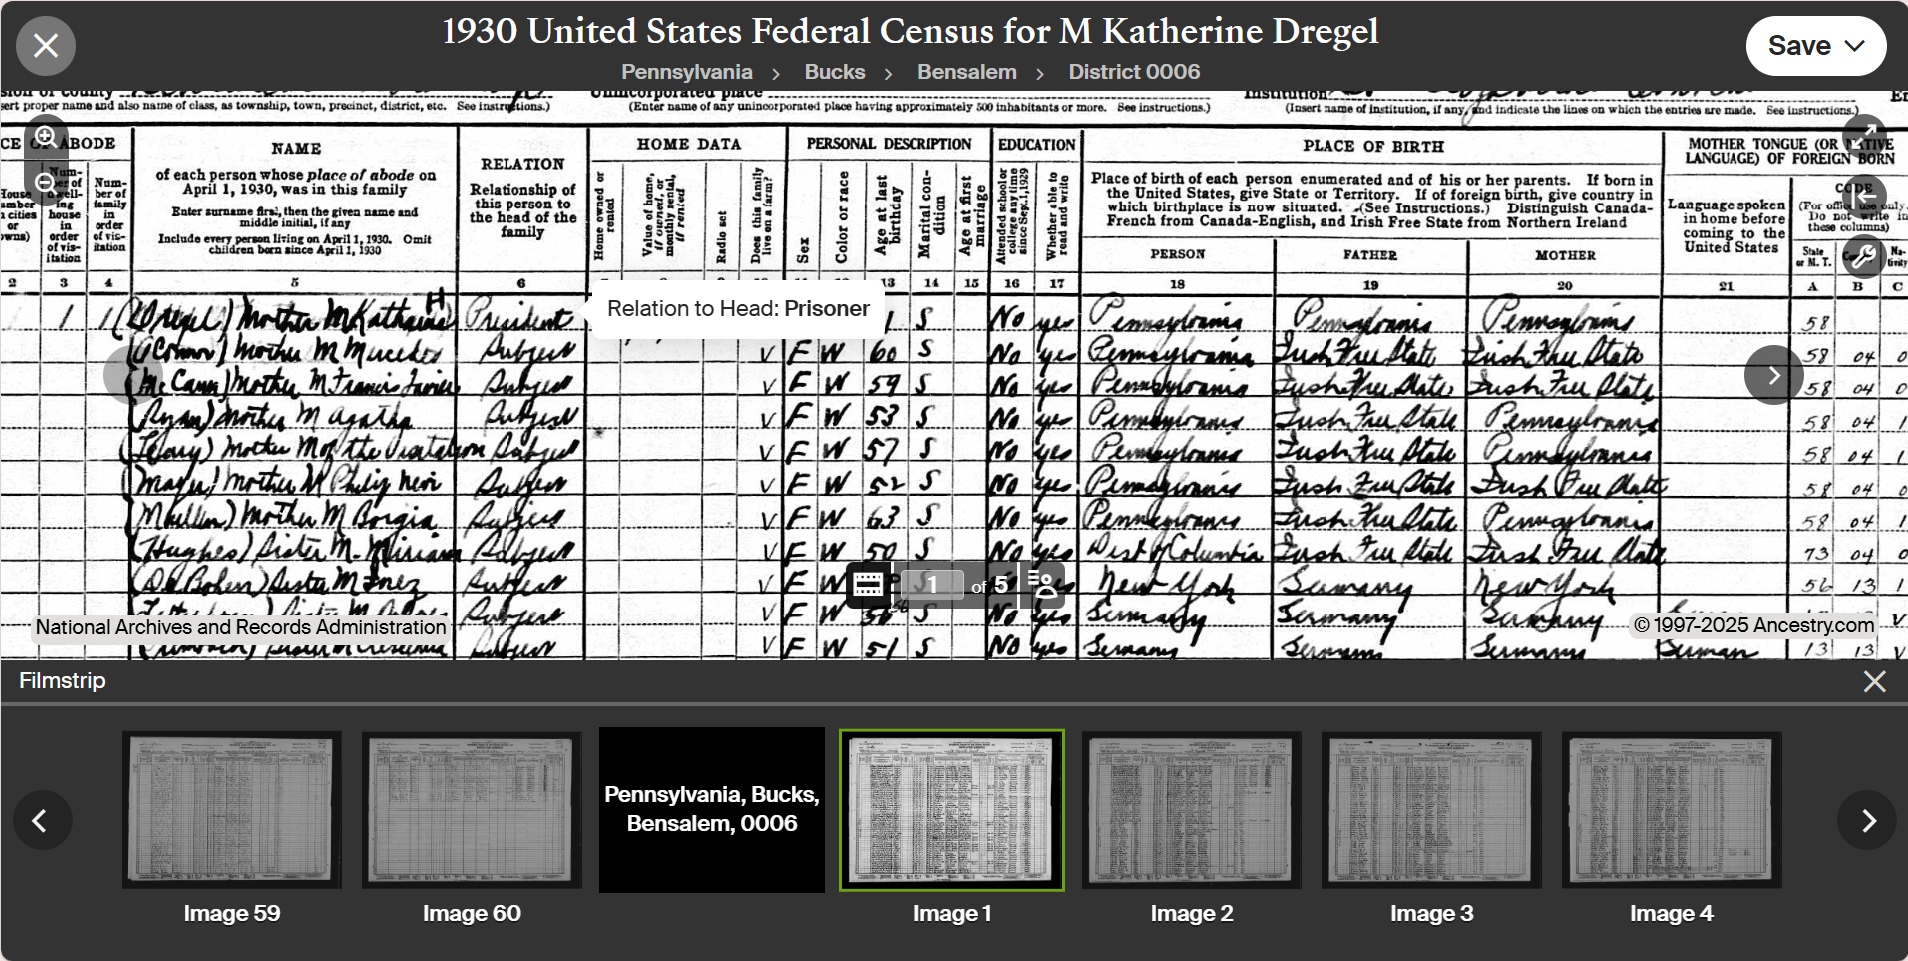 1930 United States Federal Census for M Katherine Dregel
Save
Pennsylvania > Bucks > Bensalem > District 0006
Unincorporated place
Institution
sert proper name and also name of class, as township, town, precinct, district, etc. See instructions.)
(Enter name of any unincorporated place having approximately 500 inhabitants or more. See instructions.)
(Insert name of institution, if any, and indicate the lines on which the entries are made. See instructions.)
ABODE
Num-
ber of
family
in
order
of vis-
itation
NAME
of each person whose place of abode on
April 1, 1930, was in this family
Enter surname first, then the given name and
middle initial, if any
Include every person living on April 1, 1930. Omit
children born since April 1, 1930
RELATION
Relationship of
this person to
the head of the
family
HOME DATA
Home owned or
rented
Value of home,
if owned, or
monthly rental,
if rented
Radio set
Does this family
live on a farm?
PERSONAL DESCRIPTION
Sex
Color or race
Age at last
birthday
Marital con-
dition
Age at first
marriage
EDUCATION
Attended school or
college any time
since Sept. 1, 1929
Whether able to
read and write
PLACE OF BIRTH
Place of birth of each person enumerated and of his or her parents. If born in
the United States, give State or Territory. If of foreign birth, give country in
which birthplace is now situated. (See Instructions.) Distinguish Canada-
French from Canada-English, and Irish Free State from Northern Ireland
PERSON FATHER MOTHER
MOTHER TONGUE (OR NATIVE
LANGUAGE) OF FOREIGN BORN
Language spoken
in home before
coming to the
United States
CODE
(For office use only.
Do not write in
these columns)
State
or M. T.
Na-
tivity
2 3 4 5 6 13 14 15 16 17 18 19 20 21 A B C
1 1 (Dregel) Mother M Katharine H President S No yes Pennsylvania Pennsylvania Pennsylvania 58
Relation to Head: Prisoner
(O'Connor) Mother M Mercedes Subject V F W 60 S No yes Pennsylvania Irish Free State Irish Free State 58 04 0
(McCann) Mother M Francis Xavier Subject V F W 59 S No yes Pennsylvania Irish Free State Irish Free State 58 04 0
(Ryan) Mother M Agatha Subject V F W 53 S No yes Pennsylvania Irish Free State Pennsylvania 58 04 1
(Leary) Mother M of the Visitation Subject V F W 57 S No yes Pennsylvania Irish Free State Pennsylvania 58 04 1
Mother M Philip Neri Subject V F W 52 S No yes Pennsylvania Irish Free State Irish Free State 58 04 0
Mother M Borgia Subject V F W 63 S No yes Pennsylvania Irish Free State Pennsylvania 58 04 1
(Hughes) Sister M. Miriam Subject V F W 50 S No yes Dist of Columbia Irish Free State Irish Free State 73 04 0
Sister M Inez Subject V F W New York Germany New York 56 13 1
Subject V F W S No yes Germany Germany Germany V
Subject V F W 51 S No yes Germany Germany Germany German 13 13 V
1 of 5
National Archives and Records Administration
© 1997-2025 Ancestry.com
Filmstrip
Pennsylvania, Bucks,
Bensalem, 0006
Image 59
Image 60
Image 1
Image 2
Image 3
Image 4